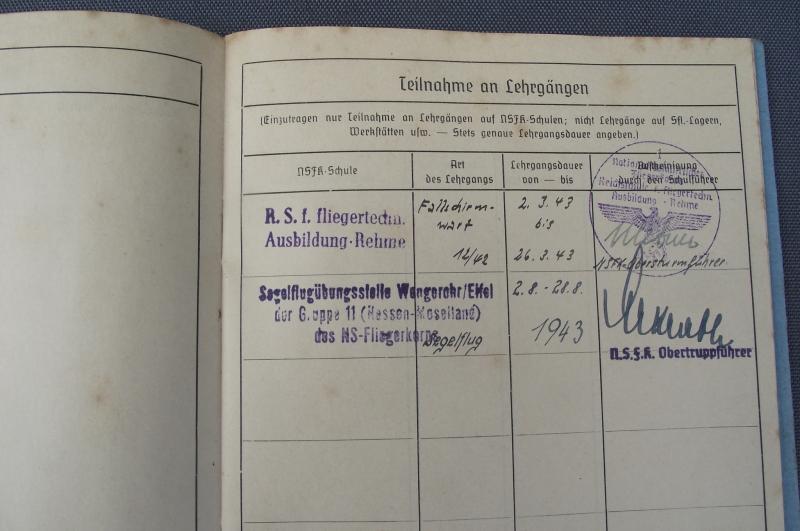 Teilnahme an Lehrgängen
(Einzutragen nur Teilnahme an Lehrgängen auf NSFK-Schulen; nicht Lehrgänge auf Sfl.-Lagern,
Werkstätten usw. — Stets genaue Lehrgangsdauer angeben.)
NSFK-Schule
Art
des Lehrgangs
Lehrgangsdauer
von — bis
Bescheinigung
durch den Schulführer
R. S. f. fliegertechn.
Ausbildung-Rehme
Fallschirm-
wart
12/42
2. 3. 43
bis
26. 3. 43
Reichsschule f. fliegertechn.
Ausbildung - Rehme
NSFK-Obersturmführer
Segelflugübungsstelle Wengerohr/Eifel
der Gruppe 11 (Hessen-Moselland)
des NS-Fliegerkorps
Segelflug
2. 8. - 28. 8.
1943
N.S.F.K. Obertruppführer